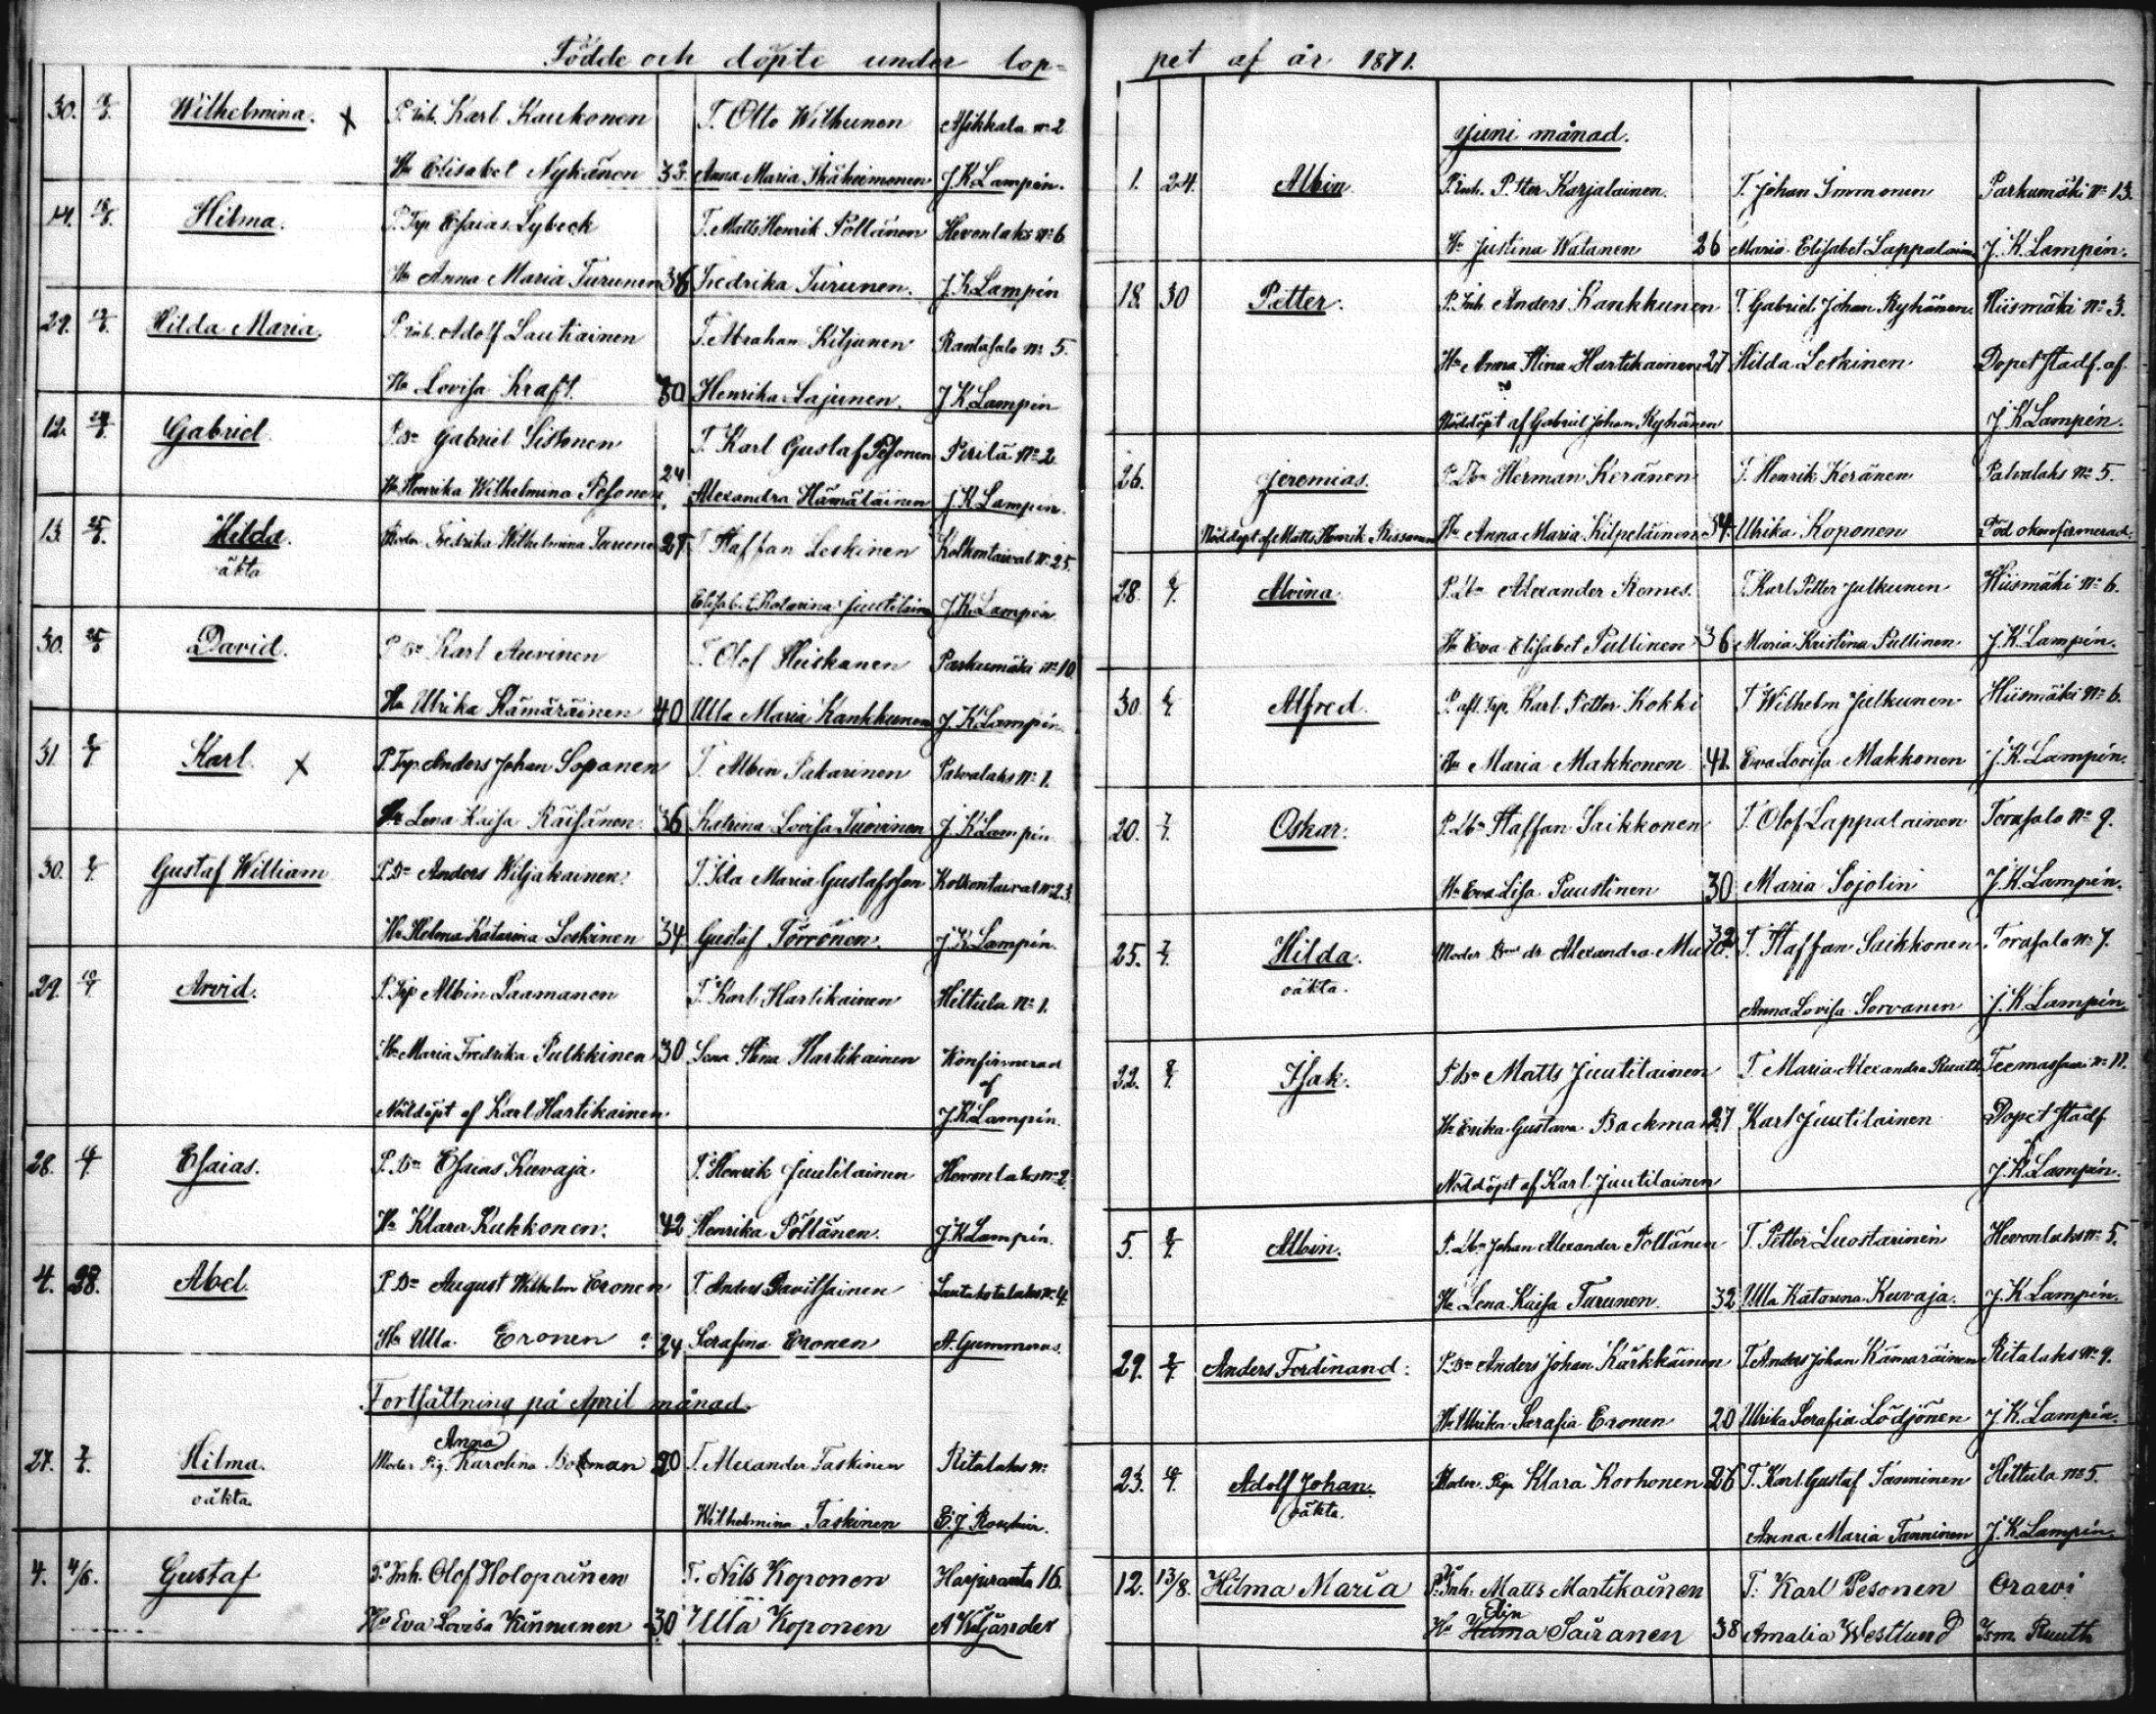 Födde och döpte under lop-
30. Wilhelmina. x P. inh. Karl Kaukonen T. Otto Wilhunen Asikkala No 2
Hu Elisabet Nykänen 33. Anna Maria J K Lampén.
14. Hilma. P. Trp Esaias Lybeck T. Matts Henrik Pöllänen Hevonlaks No 6
Hu Anna Maria Turunen 36 Fredrika Turunen. J. K Lampén
29. Hilda Maria. P. inh. Adolf Lautiainen T. Abraham Kiljunen Rantasalo No 5.
Hu Lovisa Kraft. 30 Henrika Lajunen. J K Lampén
12. Gabriel P. Bn Gabriel Sistonen T. Karl Gustaf Pesonen Pirilä No 2
Hu Henrika Wilhelmina Pesonen 24 Alexandra Hämäläinen J. K Lampén.
13. Hilda. Moder Fredrika Wilhelmina Turunen 27 T. Staffan Leskinen Kolkontaival No 25.
oäkta
Elisabet Katarina Juutilainen J K Lampén
30. David. P Bn Karl Auvinen T. Olof Heiskanen Parkumäki No 10
Hu Ulrika Kämäräinen 40 Ulla Maria Kankkunen J. K Lampén.
31. Karl. x P. Trp. Anders Johan Sopanen T. Albin Pakarinen Palvalaks No 1.
Hu Lena Kaisa Räisänen 36 Katrina Lovisa Tuovinen J. K Lampén
30. Gustaf William P. Bn Anders Wiljakainen. T. Ida Maria Gustafsson Kolkontaival No 23.
Hu Helena Katarina Leskinen 34 Gustaf Törrönen. J K Lampén.
29. Arvid. P. Trp Albin Laamanen T. Karl Hartikainen Hiltula No 1.
Hu Maria Fredrika Pulkkinen 30 Lena Stina Hartikainen Konfirmerad
af
Nöddöpt af Karl Hartikainen J. K Lampén.
28. Esaias. P. Bn Esaias Kuvaja. T. Henrik Juutilainen Hevonlaks No 2.
Hu Klara Kukkonen. 42 Henrika Pöllänen. J. K Lampén.
4. 28. Abel. P. Bn August Wilhelm Eronen T. Anders Pavilainen Lautakotalaks No 4.
Hu Ulla Eronen 24 Serafina Eronen A. Gummerus.
Fortsättning på April månad.
Anna
27. Hilma. Moder Pig. Karolina Bokman 20 T. Alexander Taskinen Ritalaks No
oäkta
Wilhelmina Taskinen E. J.
4. 4/6. Gustaf P. Inh. Olof Holopainen T. Nils Koponen Harjuranta 16.
Hu Eva Lovisa Kinnunen 30 Ulla Koponen A Kiljander
pet af år 1871.
Juni månad.
1. 24. Albin P. inh. Petter Karjalainen. T. Johan Immonen Parkumäki No 13.
Hu Justina Watanen 26 Maria Elisabet Lappalainen J. K. Lampén.
18. 30 Petter. P. Inh. Anders Kankkunen T. Gabriel Johan Ryhänen. Hiismäki No 3.
Hu Anna Stina Hartikainen 27 Hilda Leskinen Dopet stadf. af
Nöddöpt af Gabriel Johan Ryhänen J K Lampén.
26. Jeremias. P. Lbn Herman Keränen T. Henrik Keränen Palvalaks No 5.
Nöddöpt af Matts Henrik Nissanen Hu Anna Maria Kilpeläinen 34. Ulrika Koponen Död okonfirmerad.
28. Alvina P. Lbn Alexander Romes. T. Karl Petter Julkunen Hiismäki No 6.
Hu Eva Elisabet Pullinen 36 Maria Kristina Pullinen J. K Lampén.
30. Alfred. P. afl. Trp. Karl Petter Kokki T Wilhelm Julkunen Hiismäki No 6.
Hu Maria Makkonen 41. Eva Lovisa Makkonen J. K. Lampén.
20. Oskar. P. Lbn Staffan Saikkonen T. Olof Lappalainen Torasalo No 9.
Hu Eva Lisa Puustinen 30 Maria Sojolin J. K. Lampén.
25. Hilda. Moder Bn dr Alexandra 32 T. Staffan Saikkonen Torasalo No 7.
oäkta.
Anna Lovisa Sorvanen J. K Lampén
22. Isak. P. Bn Matts Juutilainen T Maria Alexandra Ruuth Teemassaari No 11.
Hu Erika Gustava Backman 27 Karl Juutilainen Dopet stadf
Nöddöpt af Karl Juutilainen J. K Lampén.
5. Albin. P. Lbn Johan Alexander Pöllänen T. Petter Luostarinen Hevonlaks No 5.
Hu Lena Kaisa Turunen. 32 Ulla Katarina Kuvaja. J. K Lampén.
29. Anders Ferdinand. P. Bn Anders Johan Kärkkäinen T. Anders Johan Kämäräinen Ritalaks No 9.
Hu Ulrika Serafia Eronen 20 Ulrika Serafia Lödjönen J. K. Lampén.
23. Adolf Johan. Moder. Pga Klara Korhonen 26 T. Karl Gustaf Tanninen Hiltula No 5.
oäkta.
Anna Maria Tanninen J. K Lampén.
12. 13/8. Hilma Maria P. Inh. Matts Martikainen T. Karl Pesonen Oravi
Elin
Hu Hilma Sairanen 38 Amalia Westlund Ism. Ruuth